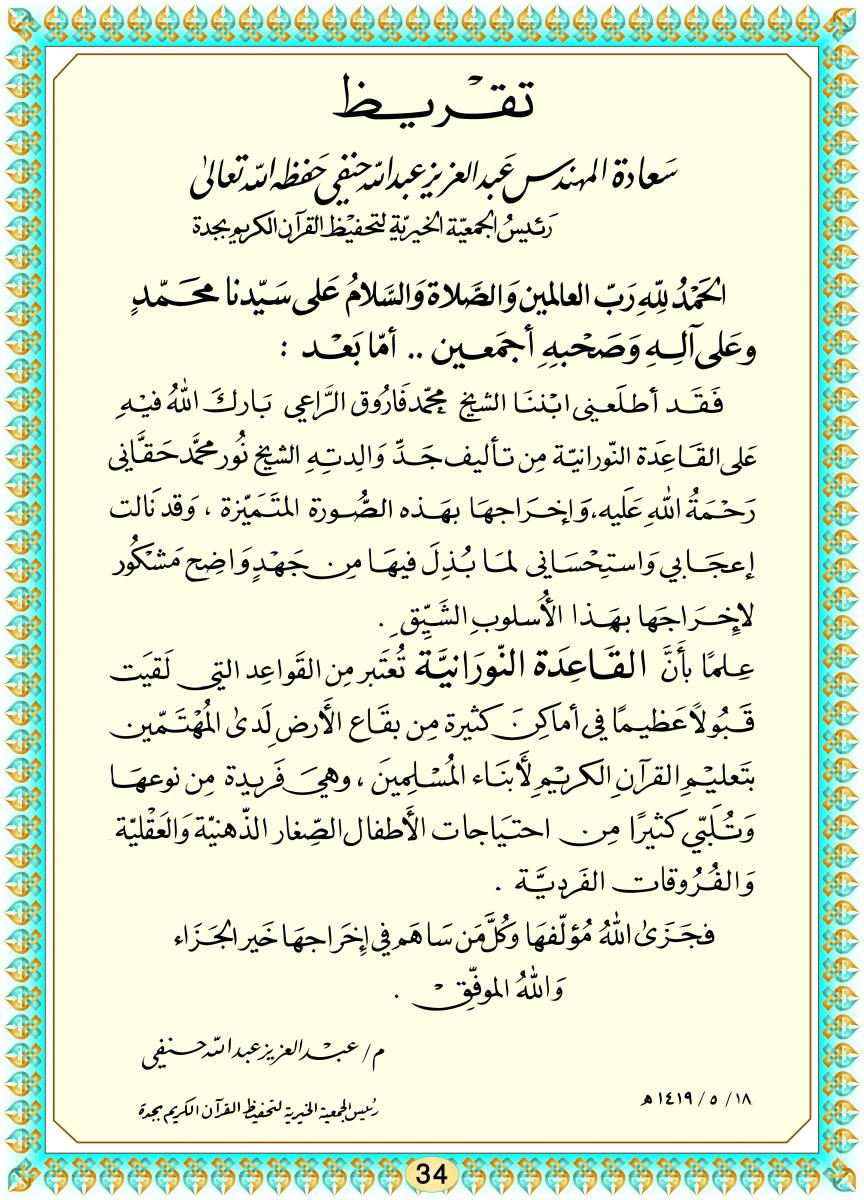 تقريظ
سَعادة المهندس عَبد العزيز عبد الله حنفي حَفظه الله تعالىٰ
رَئيسُ الجمعيّة الخيريّة لتحفيْظ القرآن الكريم بجدة
الحَمْدُ لِلّهِ رَبّ العالمين وَالصَّلاة وَالسَّلامُ عَلى سَيّدنا محَمَّدٍ
وعَلى آلِهِ وَصَحْبهِ أجمَعين .. أمّا بَعْد :
فَقَد أطلَعني ابْننَا الشيخ محمّد فَاروق الرَّاعي بَاركَ اللهُ فيْهِ
عَلى القَاعِدَة النّورانيّة مِن تأليف جَدِّ وَالدتِهِ الشيخ نُور محمَّد حَقَّاني
رَحْمَةُ اللهِ عَليه، وَإخرَاجهَا بهَذه الصُّورة المتَميّزة ، وَقد نَالت
إعجَابي وَاستِحْسَاني لمَا بُذِلَ فيهَا مِن جَهْدٍ وَاضِح مَشْكُور
لإخِرَاجَهَا بهَذا الأُسلوبِ الشَيِّقِ .
عِلمًا بأنَّ القَاعِدَة النّورَانيَّة تُعْتَبر مِن القَواعِد التي لَقيَت
قَبُولاً عَظيمًا في أماكِنَ كثيرة مِن بقَاع الأَرض لَدىٰ المُهْتَمّين
بتَعليْم القرآن الكريْم لأَبنَاء المُسْلِمينَ ، وهيَ فَريدة مِن نوعهَا
وَتُلَبّي كثيرًا مِن احتيَاجات الأَطفال الصِّغار الذّهنيّة وَالعَقْليّة
وَالفُرُوقات الفَرديَّة .
فجَزَىٰ اللهُ مُؤلّفهَا وَكُلَّ مَن سَاهَم في إخرَاجهَا خَير الجَزَاء
وَاللهُ الموفِّقْ .
م/ عبْد العزيز عبد الله حنفي
رئيس الجمعية الخيرية لتحفيظ القرآن الكريم بجدة
١٨ / ٥ / ١٤١٩ هـ
34